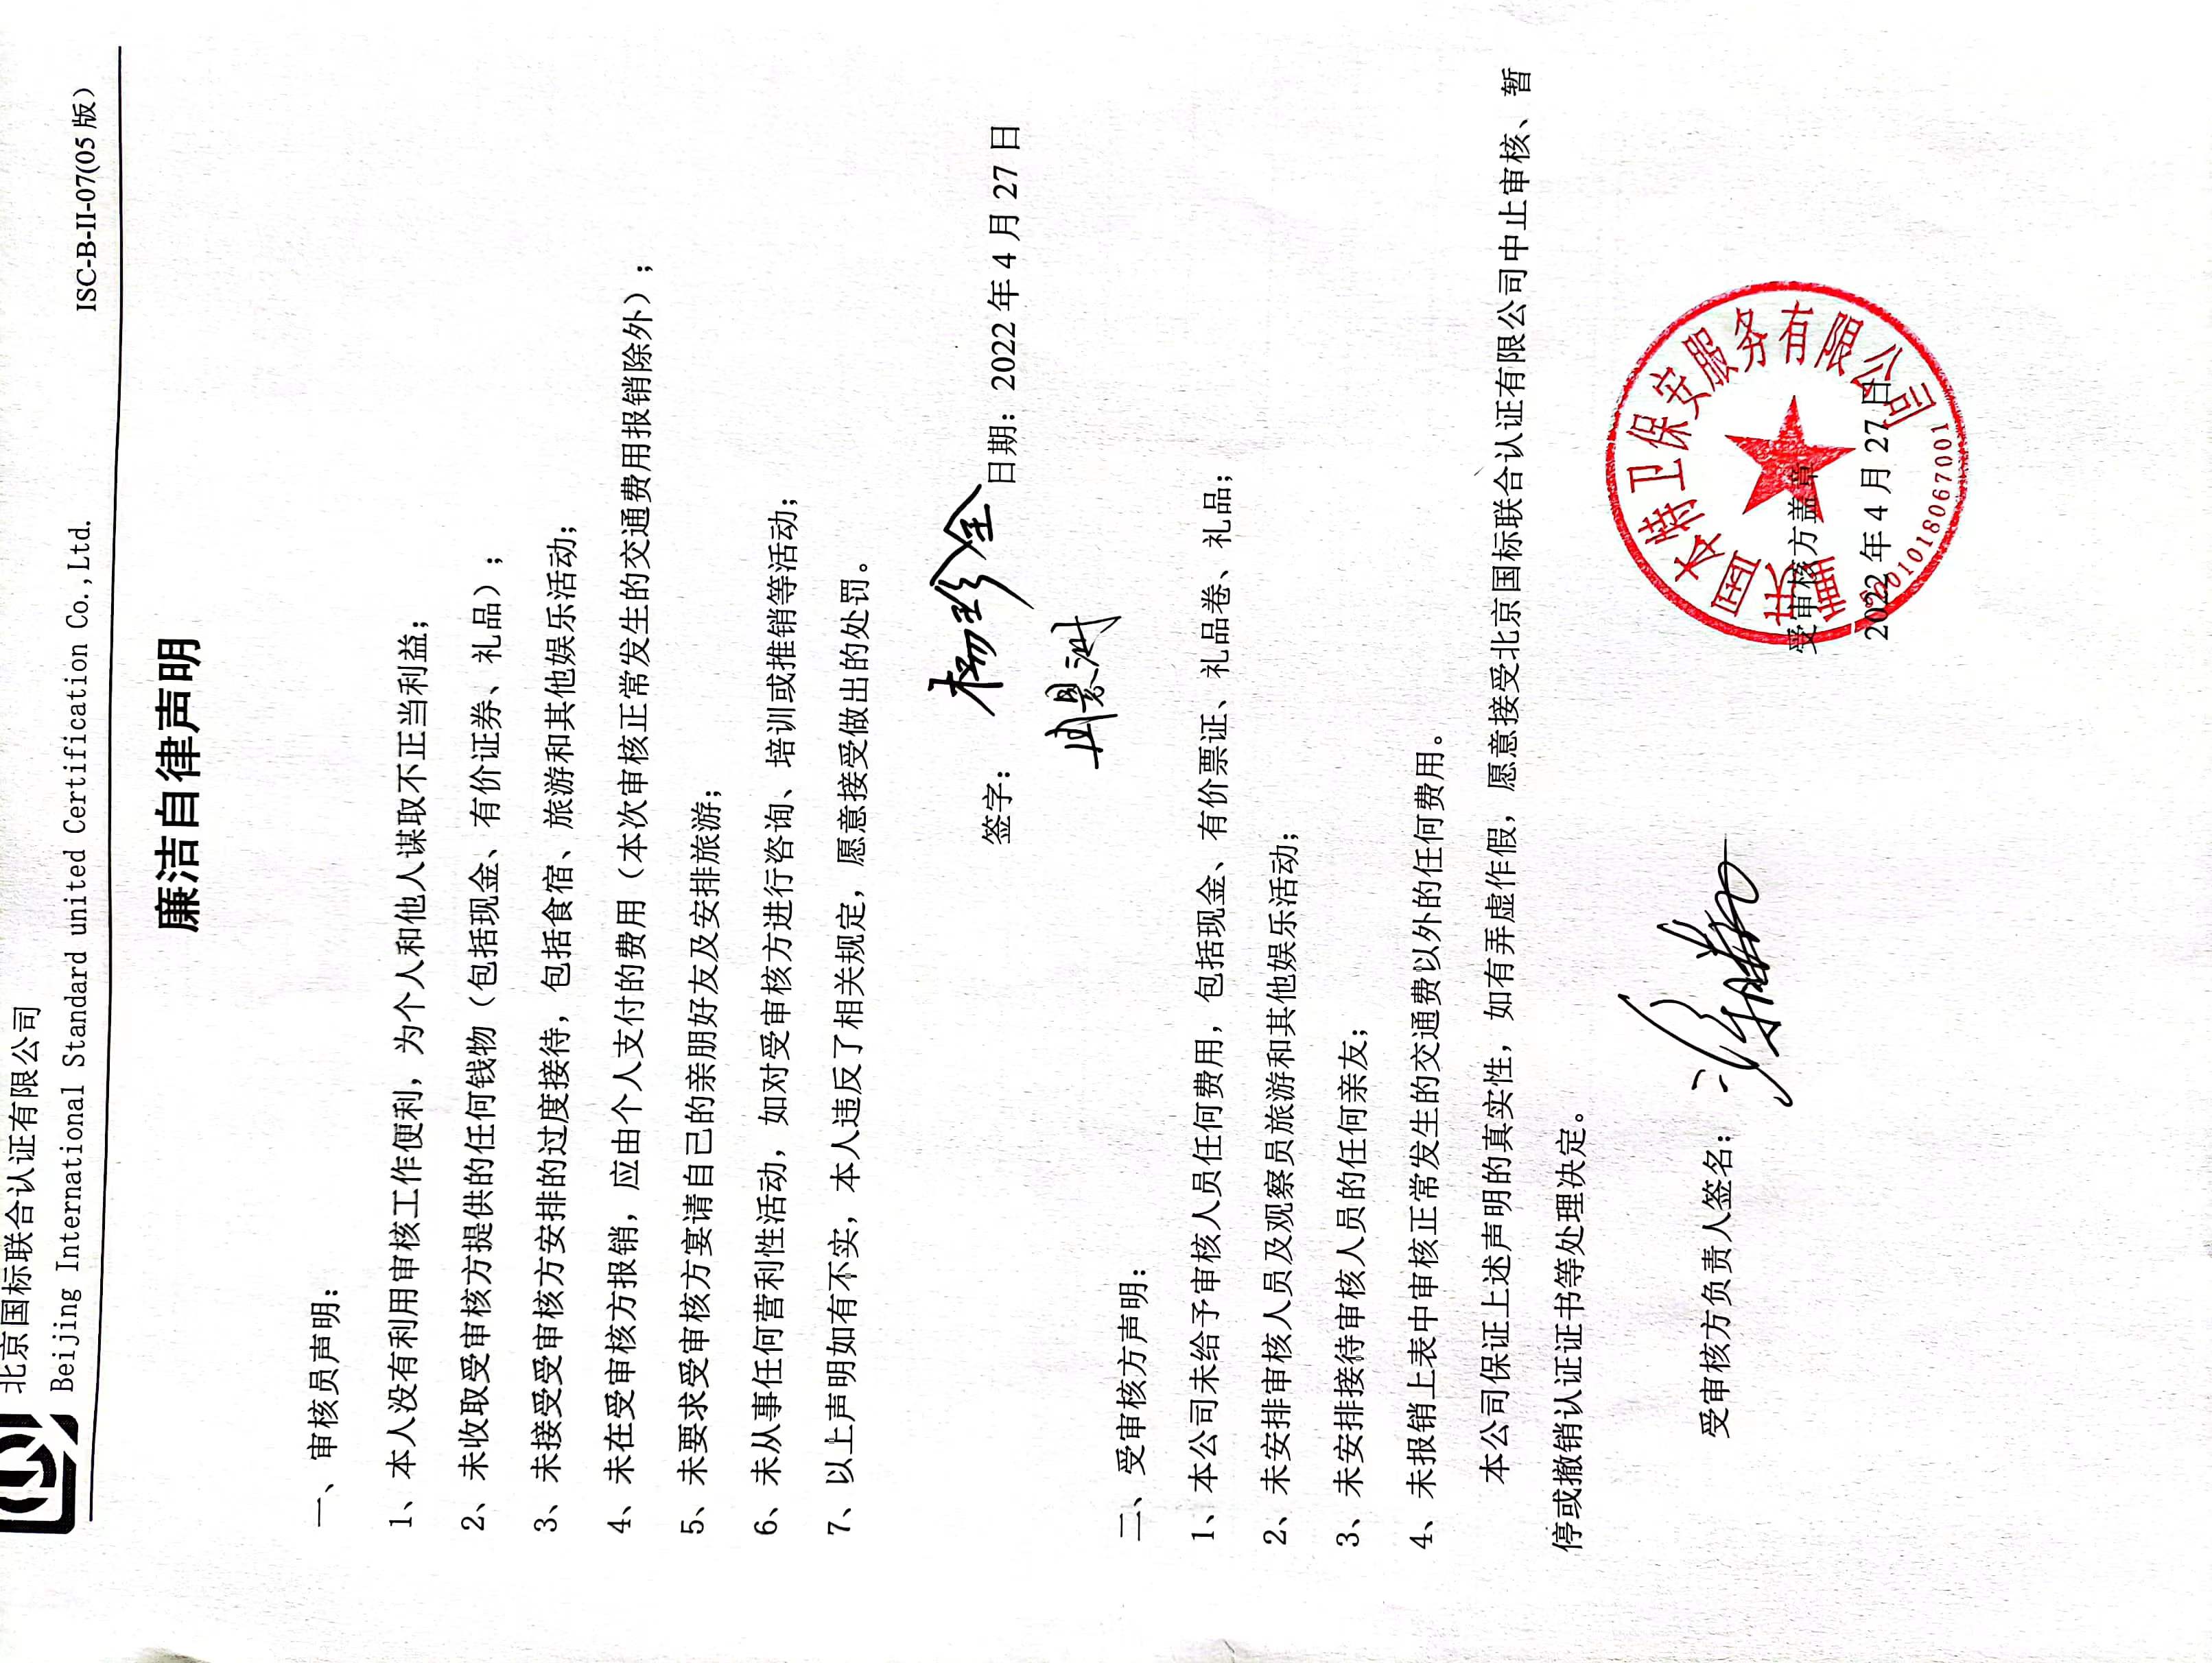 北京国标联合认证有限公司
Beijing International Standard united Certification Co.,Ltd. ISC-B-II-07(05 版)
廉洁自律声明
一、审核员声明：
1、本人没有利用审核工作便利，为个人和他人谋取不正当利益；
2、未收取受审核方提供的任何钱物（包括现金、有价证券、礼品）；
3、未接受受审核方安排的过度接待，包括食宿、旅游和其他娱乐活动；
4、未在受审核方报销，应由个人支付的费用（本次审核正常发生的交通费用报销除外）；
5、未要求受审核方宴请自己的亲朋好友及安排旅游；
6、未从事任何营利性活动，如对受审核方进行咨询、培训或推销等活动；
7、以上声明如有不实，本人违反了相关规定，愿意接受做出的处罚。
签字： 杨珍全 日期：2022 年 4 月 27 日
二、受审核方声明：
1、本公司未给予审核人员任何费用，包括现金、有价票证、礼品卷、礼品；
2、未安排审核人员及观察员旅游和其他娱乐活动；
3、未安排接待审核人员的任何亲友；
4、未报销上表中审核正常发生的交通费以外的任何费用。
本公司保证上述声明的真实性，如有弄虚作假，愿意接受北京国标联合认证有限公司中止审核、暂
停或撤销认证证书等处理决定。
受审核方负责人签名：
受审核方盖章
2022 年 4 月 27 日
特卫保安服务有限公司